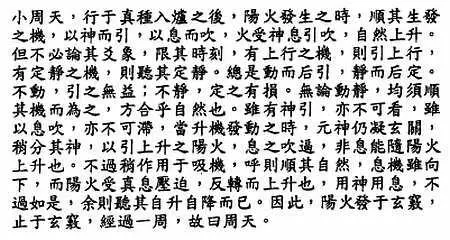 小周天，行于真種入爐之後，陽火發生之時，順其生發
之機，以神而引，以息而吹，火受神息引吹，自然上升。
但不必論其爻象，限其時刻，有上行之機，則引上行，
有定靜之機，則聽其定靜。總是動而后引，靜而后定。
不動，引之無益；不靜，定之有損。無論動靜，均須順
其機而為之，方合乎自然也。雖有神引，亦不可看，雖
以息吹，亦不可滯，當升機發動之時，元神仍凝玄關，
稍分其神，以引上升之陽火，息之吹逼，非息能隨陽火
上升也。不過稍作用于吸機，呼則順其自然，息機雖向
下，而陽火受真息壓迫，反轉而上升也，用神用息，不
過如是，余則聽其自升自降而已。因此，陽火發于玄竅，
止于玄竅，經過一周，故曰周天。